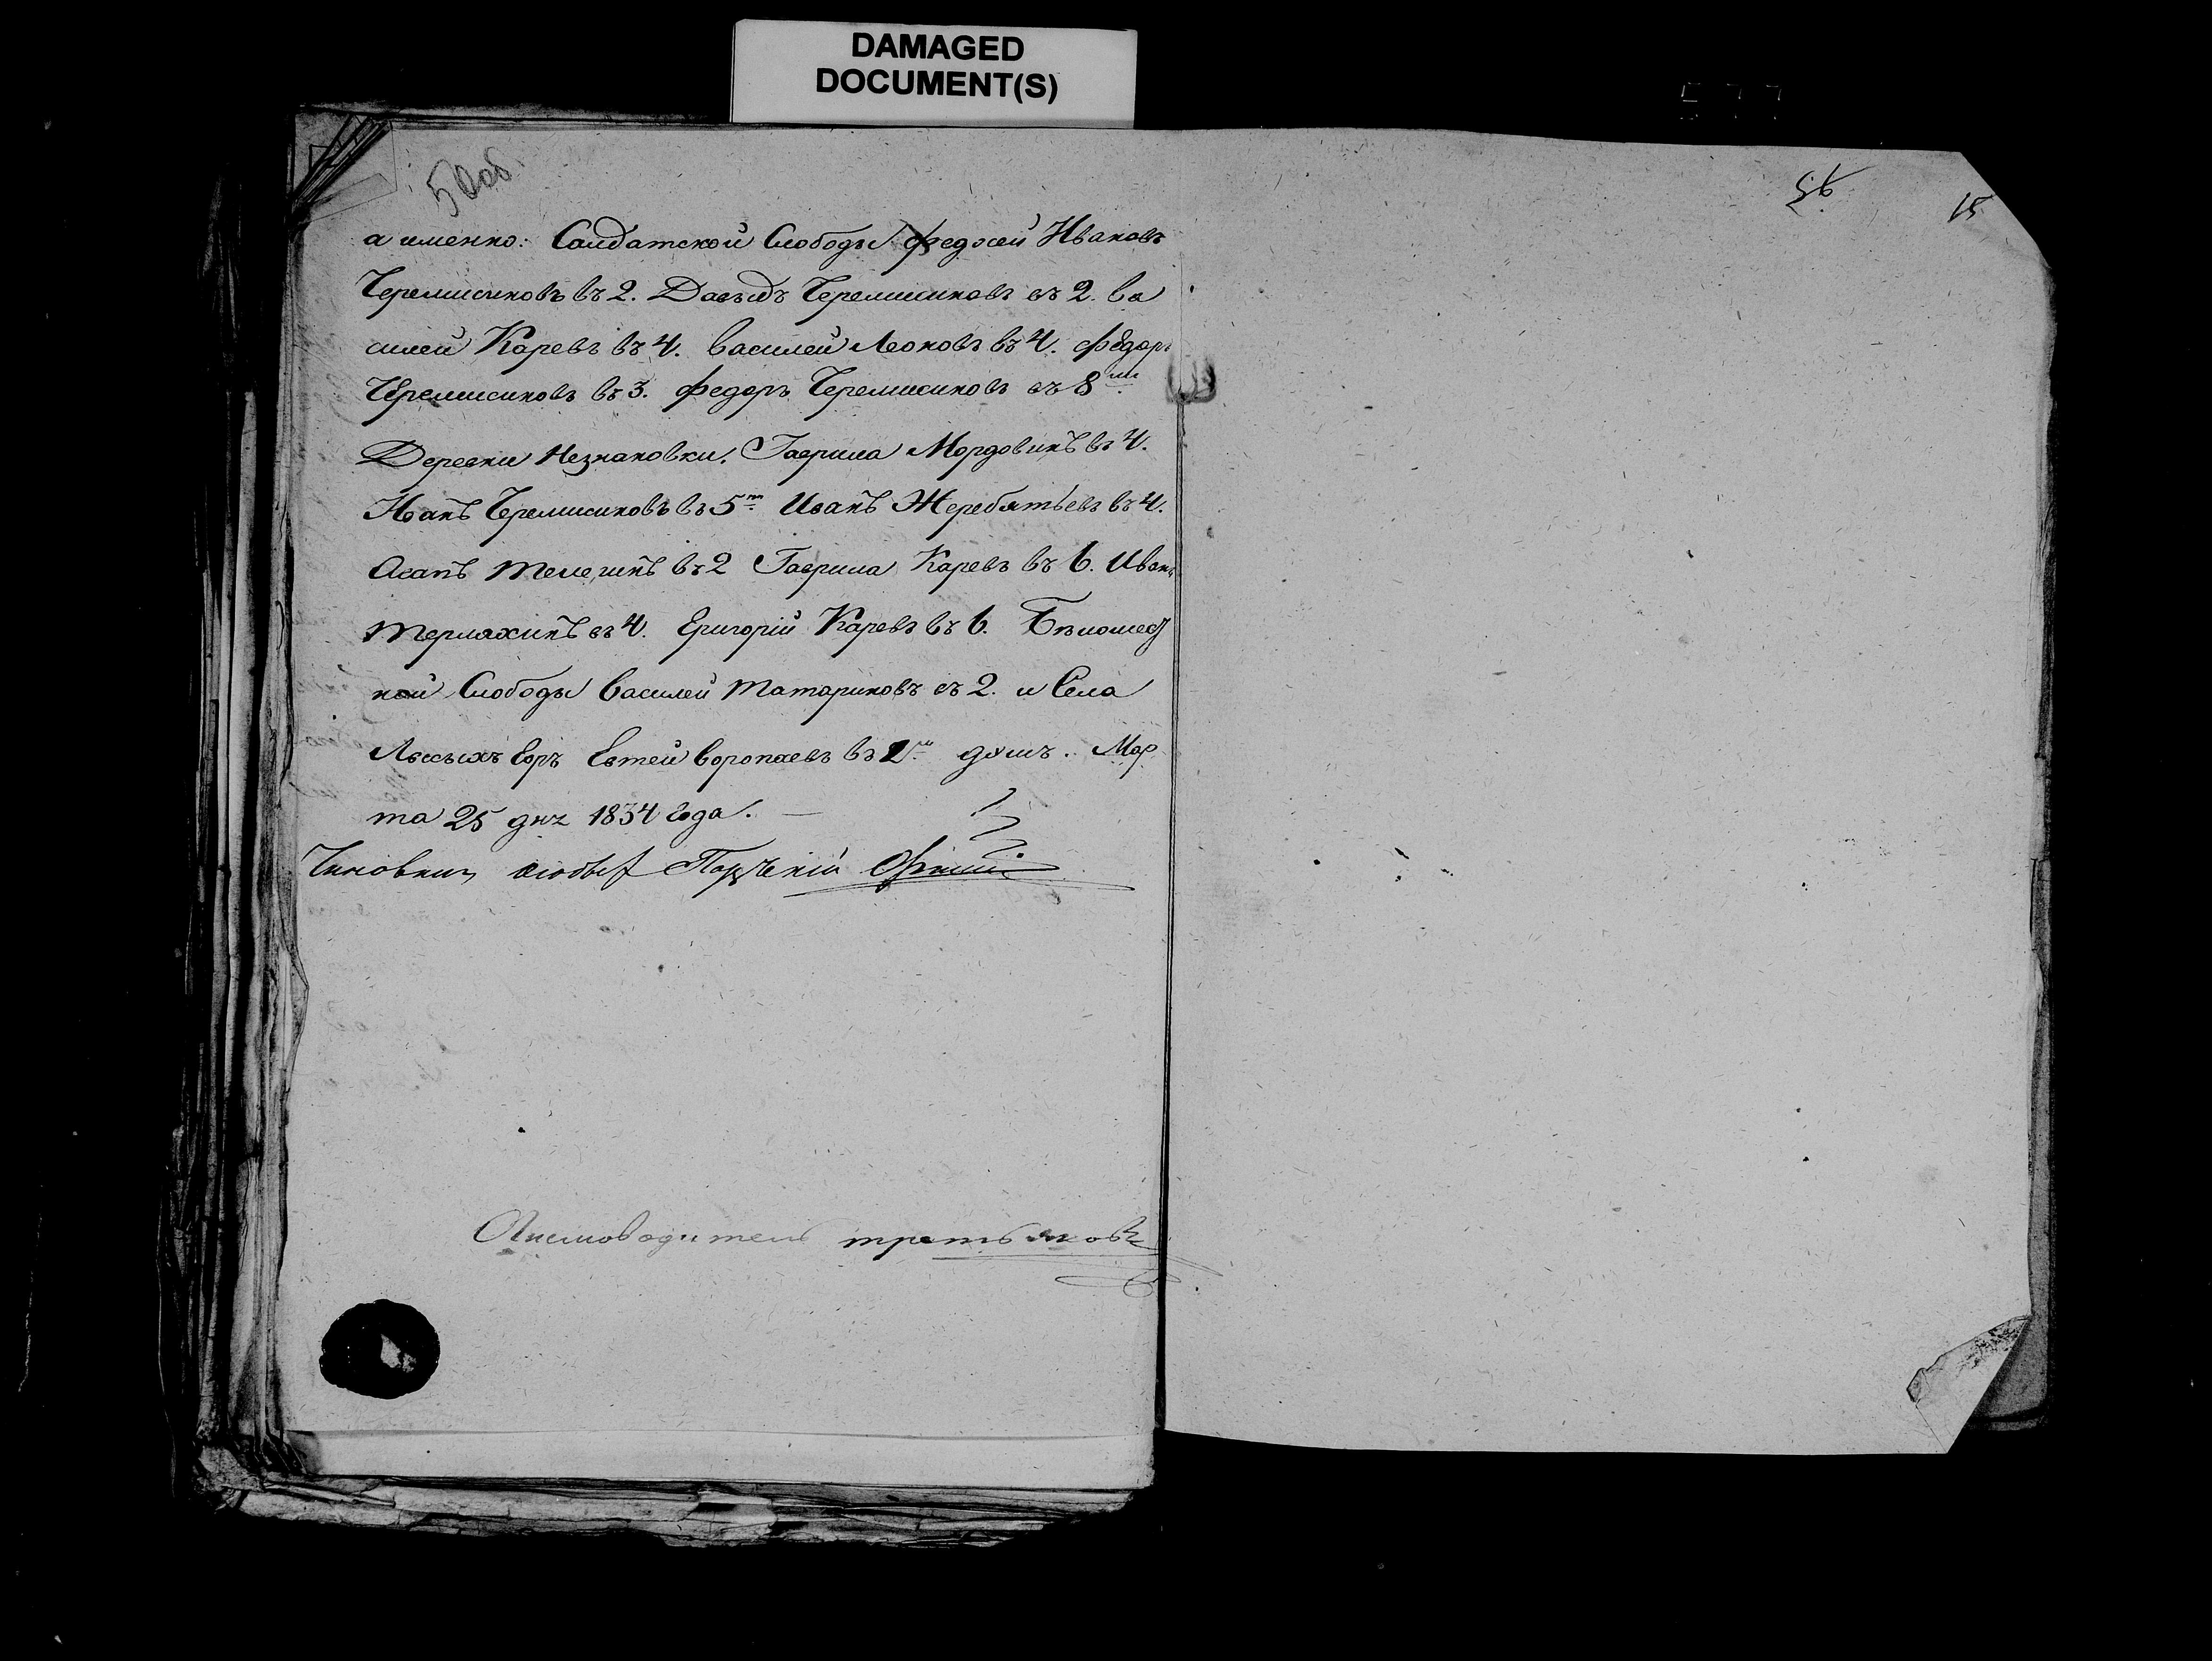 DAMAGED
DOCUMENT(S)
56
15
а именно: Салдатской Слободы Федосей Ивановъ
Черемисиновъ въ 2. Давыдъ Черемисиновъ въ 2. Ва
силей Каревъ въ 4. Василей Леоновъ въ 4. Федоръ
Черемисиновъ въ 3. Федоръ Черемисиновъ въ 8ми
Деревни Незнановки. Гаврила Мордовинъ въ 4.
Иванъ Черемисиновъ въ 5ти Иванъ Жеребятьевъ въ 4.
въ 2 Гаврила Каревъ въ 6. Иванъ
въ 4. Григорій Каревъ въ 6. Бѣломес
ной Слободы Василей Татариновъ въ 2. и Села
Лысыхъ Горъ Евтей Воропаевъ въ душъ. Мар
та 25 дня 1834 года.
Чиновникъ Порѣцкій
Писмоводитель третьяковъ